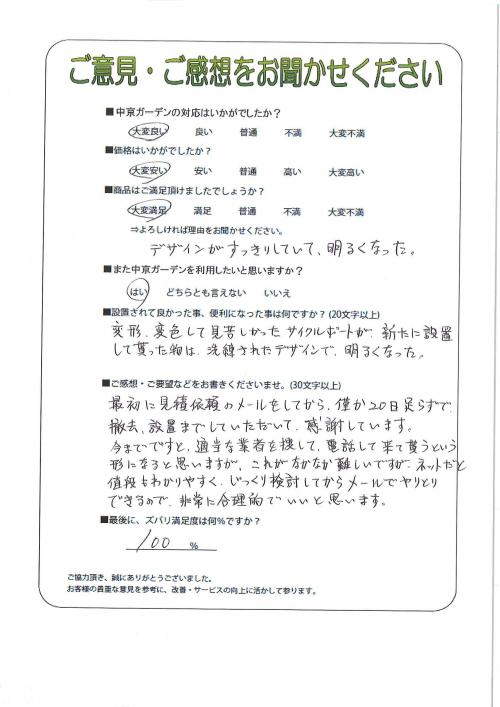 ご意見・ご感想をお聞かせください
■中京ガーデンの対応はいかがでしたか?
大変良い 良い 普通 不満 大変不満
■価格はいかがでしたか?
大変安い 安い 普通 高い 大変高い
■商品はご満足頂けましたでしょうか?
大変満足 満足 普通 不満 大変不満
⇒よろしければ理由をお聞かせください。
デザインがすっきりしていて、明るくなった。
■また中京ガーデンを利用したいと思いますか?
はい どちらとも言えない いいえ
■設置されて良かった事、便利になった事は何ですか?(20文字以上)
変形、変色して見苦しかったサイクルポートが、新たに設置
して貰った物は、洗練されたデザインで、明るくなった。
■ご感想・ご要望などをお書きくださいませ。(30文字以上)
最初に見積依頼のメールをしてから、僅か20日足らずで、
撤去、設置までしていただいて、感謝しています。
今までですと、適当な業者を捜して、電話して来て貰うという
形になると思いますが、これがなかなか難しいですが、ネットだと
値段もわかりやすく、じっくり検討してからメールでヤリとり
できるので、非常に合理的でいいと思います。
■最後に、ズバリ満足度は何%ですか?
100 %
ご協力頂き、誠にありがとうございました。
お客様の貴重な意見を参考に、改善・サービスの向上に活かして参ります。